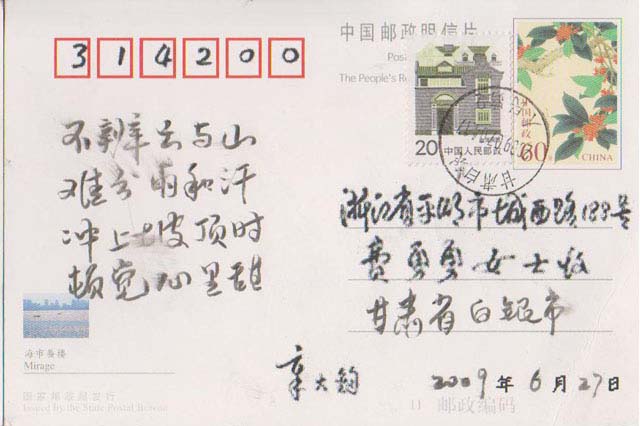 314200
中国邮政明信片
Posta
The People's Re
20
中国人民邮政
中国邮政
60
CHINA
不辨云与山
难分雨和汗
冲上坡顶时
顿觉心里甜
浙江省平湖市城西路133号
费勇勇女士收
甘肃省白银市
章大钧
2009年6月27日
海市蜃楼
Mirage
国家邮政局发行
Issued by the State Postal Bureau
邮政编码